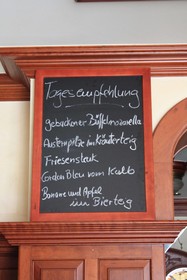 Tagesempfehlung
gebackener Büffelmozzarella
Austernpilze im Kräuterteig
Friesensteak
Cordon Bleu vom Kalb
Banane und Apfel
im Bierteig